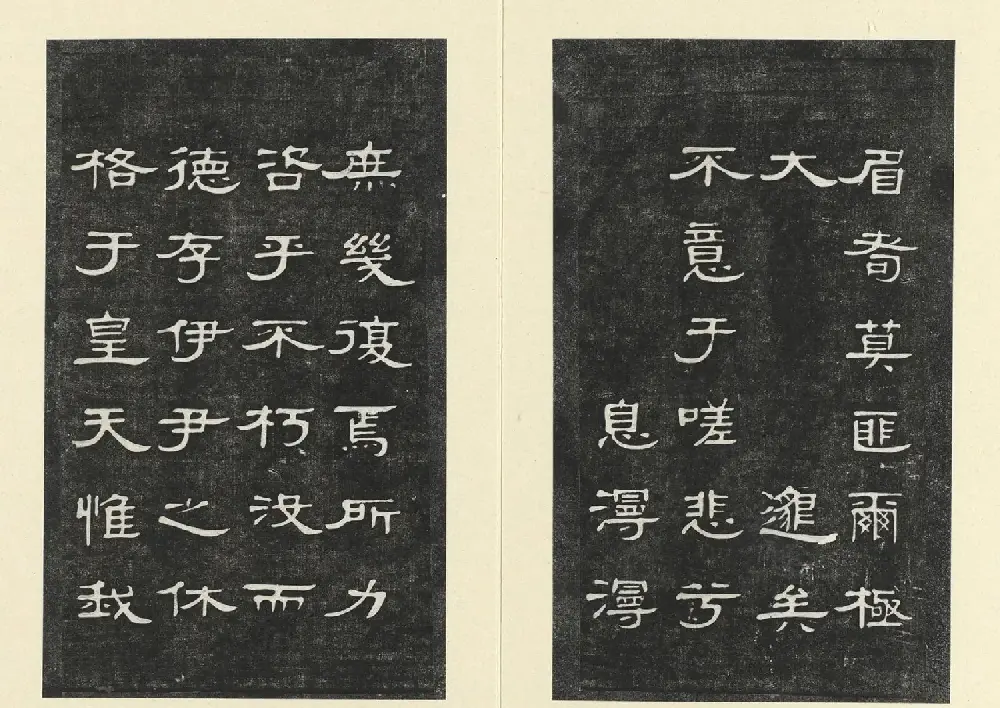 眉耇莫匪爾極
大矣
不意于嗟悲兮
息漫漫
庶幾復焉所力
咨乎不朽沒而
德存伊尹之休
格于皇天惟我